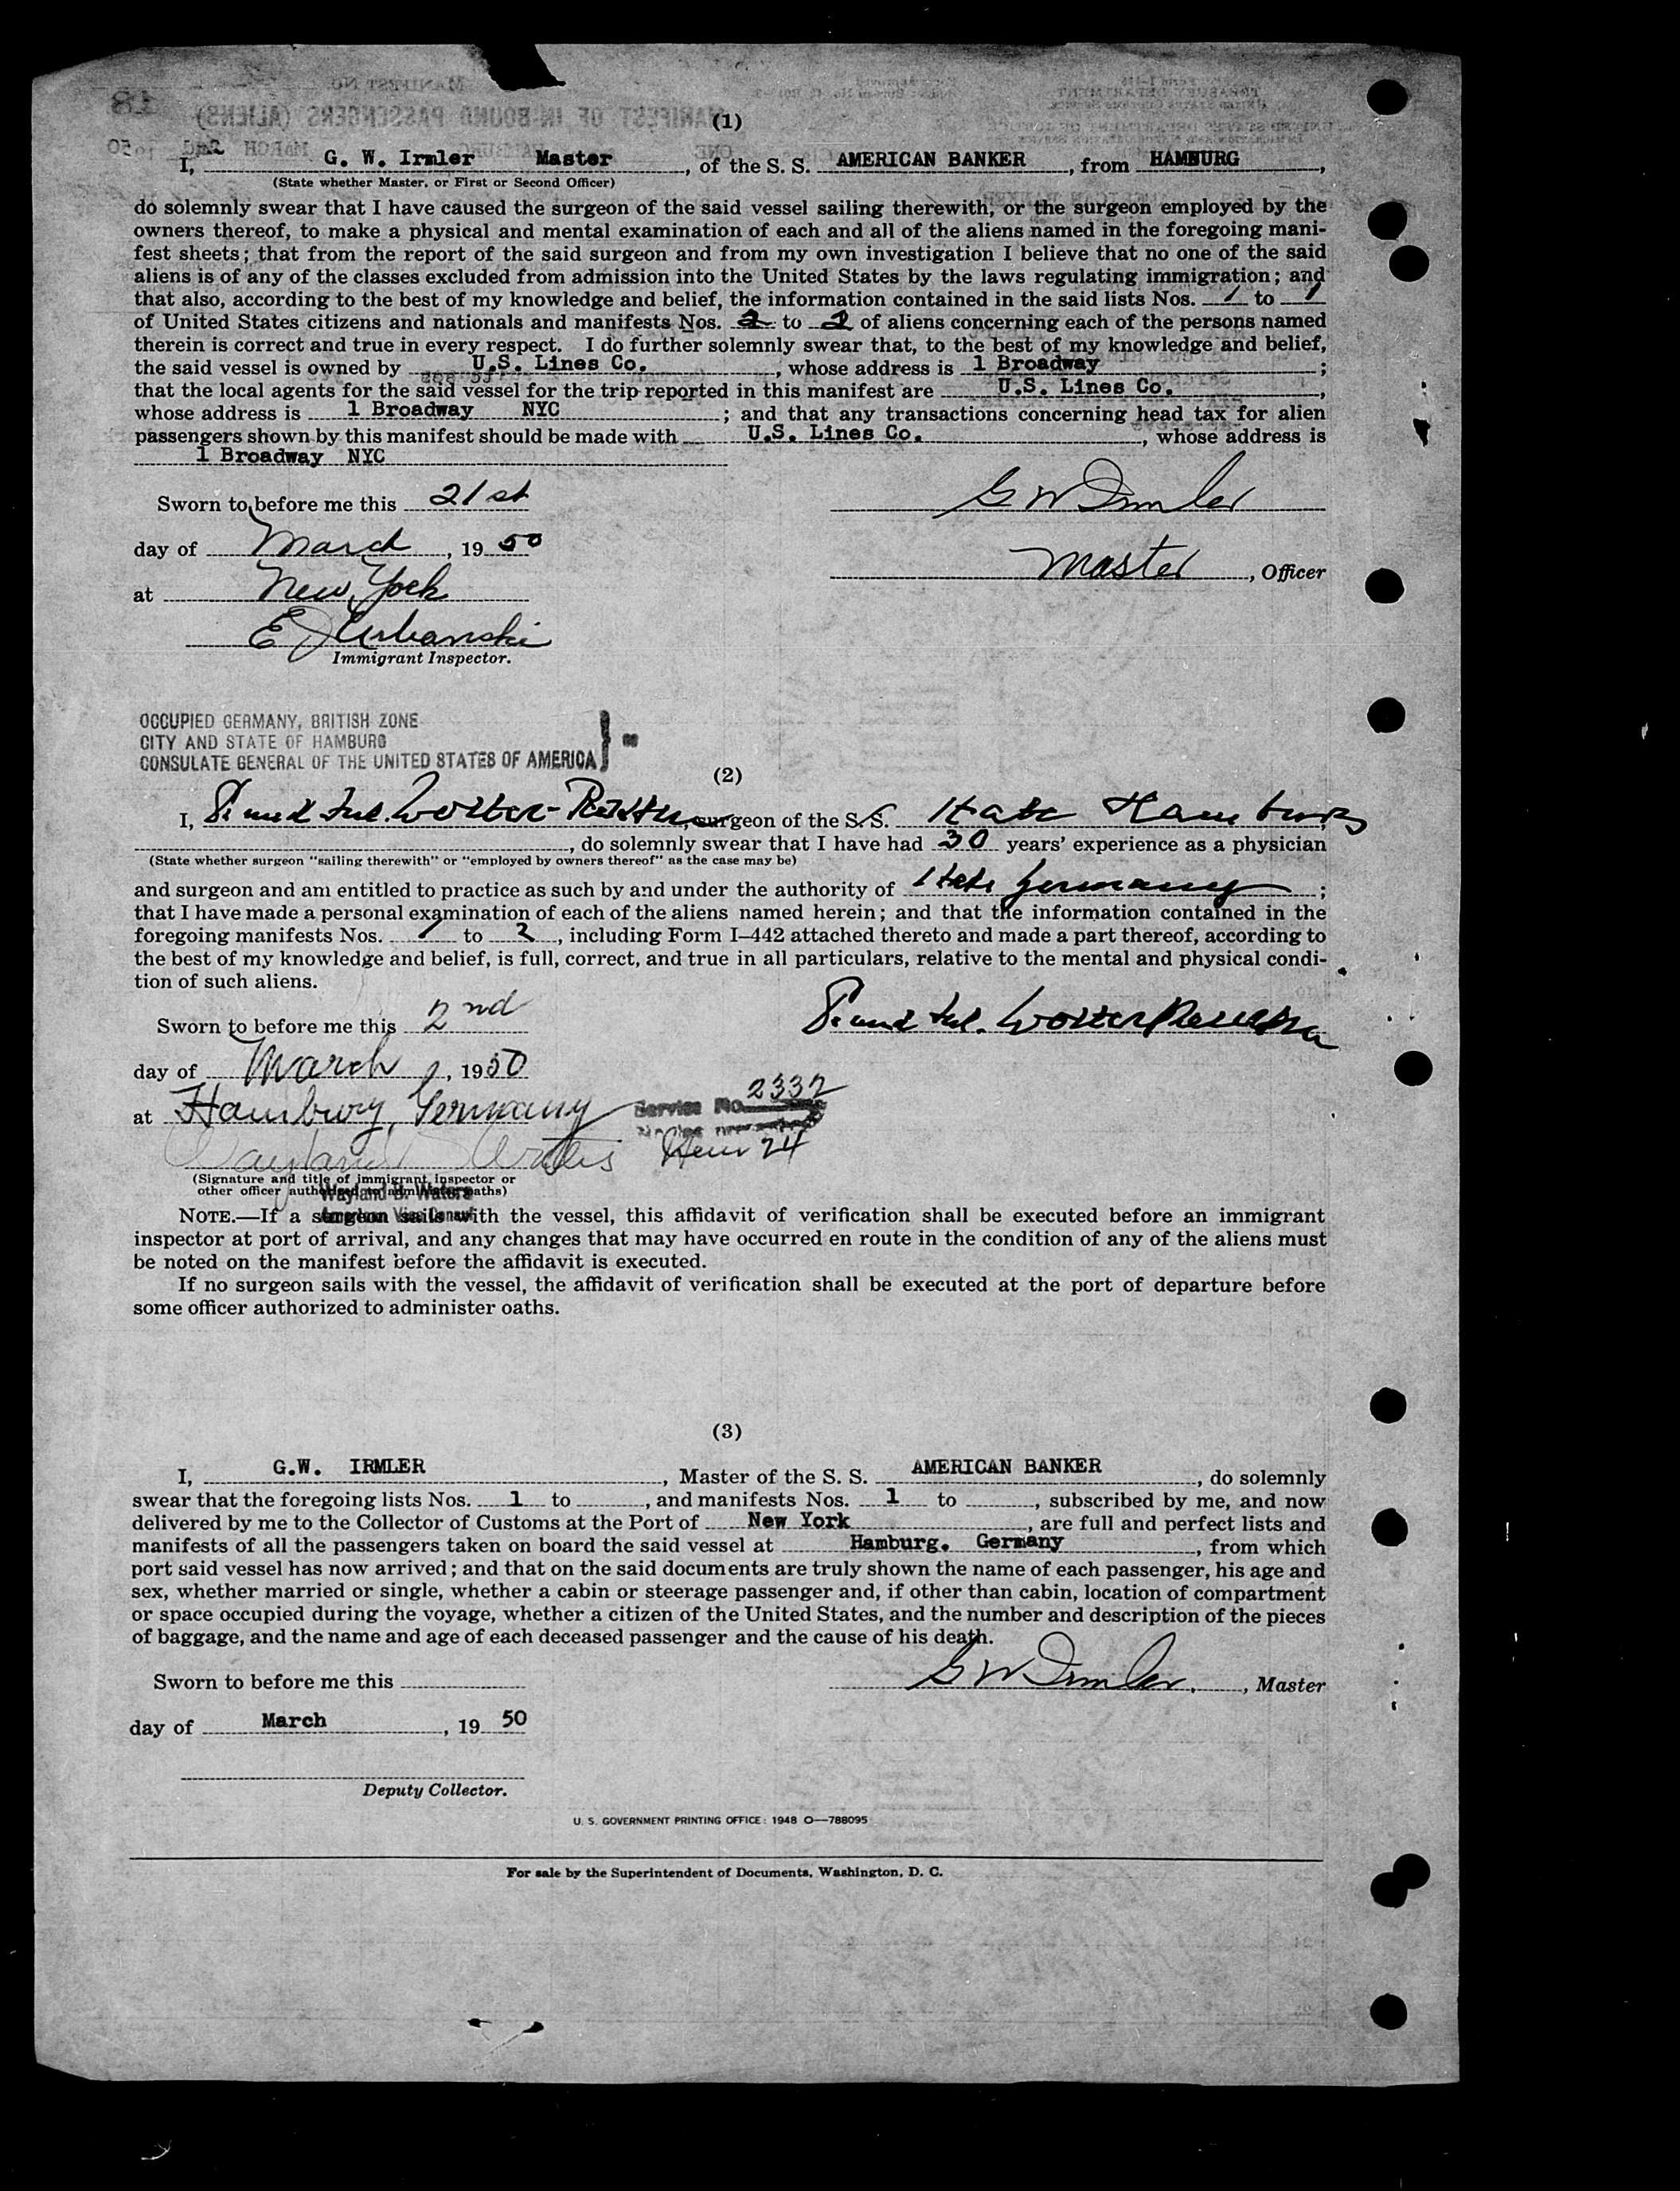 (1)
I, G. W. Irmler Master, of the S. S. AMERICAN BANKER, from HAMBURG,
(State whether Master, or First or Second Officer)
do solemnly swear that I have caused the surgeon of the said vessel sailing therewith, or the surgeon employed by the
owners thereof, to make a physical and mental examination of each and all of the aliens named in the foregoing mani-
fest sheets; that from the report of the said surgeon and from my own investigation I believe that no one of the said
aliens is of any of the classes excluded from admission into the United States by the laws regulating immigration; and
that also, according to the best of my knowledge and belief, the information contained in the said lists Nos. 1 to 1
of United States citizens and nationals and manifests Nos. 2 to 2 of aliens concerning each of the persons named
therein is correct and true in every respect. I do further solemnly swear that, to the best of my knowledge and belief,
the said vessel is owned by U.S. Lines Co., whose address is 1 Broadway;
that the local agents for the said vessel for the trip reported in this manifest are U.S. Lines Co.,
whose address is 1 Broadway NYC; and that any transactions concerning head tax for alien
passengers shown by this manifest should be made with U.S. Lines Co., whose address is
1 Broadway NYC
Sworn to before me this 21st
G W Irmler
day of March, 19 50
Master, Officer
at New York
E J Urbanski
Immigrant Inspector.
OCCUPIED GERMANY, BRITISH ZONE
CITY AND STATE OF HAMBURG
CONSULATE GENERAL OF THE UNITED STATES OF AMERICA
(2)
I, surgeon of the S. S. State Hamburg
, do solemnly swear that I have had 30 years' experience as a physician
(State whether surgeon "sailing therewith" or "employed by owners thereof" as the case may be)
and surgeon and am entitled to practice as such by and under the authority of State Germany;
that I have made a personal examination of each of the aliens named herein; and that the information contained in the
foregoing manifests Nos. 1 to 2, including Form I–442 attached thereto and made a part thereof, according to
the best of my knowledge and belief, is full, correct, and true in all particulars, relative to the mental and physical condi-
tion of such aliens.
Sworn to before me this 2nd
day of March, 1950
at Hamburg, Germany
Service No. 2332
Item 24
(Signature and title of immigrant inspector or
other officer authorized to administer oaths)
Wayland B. Waters
American Vice Consul
NOTE.—If a surgeon sails with the vessel, this affidavit of verification shall be executed before an immigrant
inspector at port of arrival, and any changes that may have occurred en route in the condition of any of the aliens must
be noted on the manifest before the affidavit is executed.
If no surgeon sails with the vessel, the affidavit of verification shall be executed at the port of departure before
some officer authorized to administer oaths.
(3)
I, G.W. IRMLER, Master of the S. S. AMERICAN BANKER, do solemnly
swear that the foregoing lists Nos. 1 to , and manifests Nos. 1 to , subscribed by me, and now
delivered by me to the Collector of Customs at the Port of New York, are full and perfect lists and
manifests of all the passengers taken on board the said vessel at Hamburg. Germany, from which
port said vessel has now arrived; and that on the said documents are truly shown the name of each passenger, his age and
sex, whether married or single, whether a cabin or steerage passenger and, if other than cabin, location of compartment
or space occupied during the voyage, whether a citizen of the United States, and the number and description of the pieces
of baggage, and the name and age of each deceased passenger and the cause of his death.
Sworn to before me this
G W Irmler, Master
day of March, 19 50
Deputy Collector.
U. S. GOVERNMENT PRINTING OFFICE: 1948 O—788095
For sale by the Superintendent of Documents, Washington, D. C.